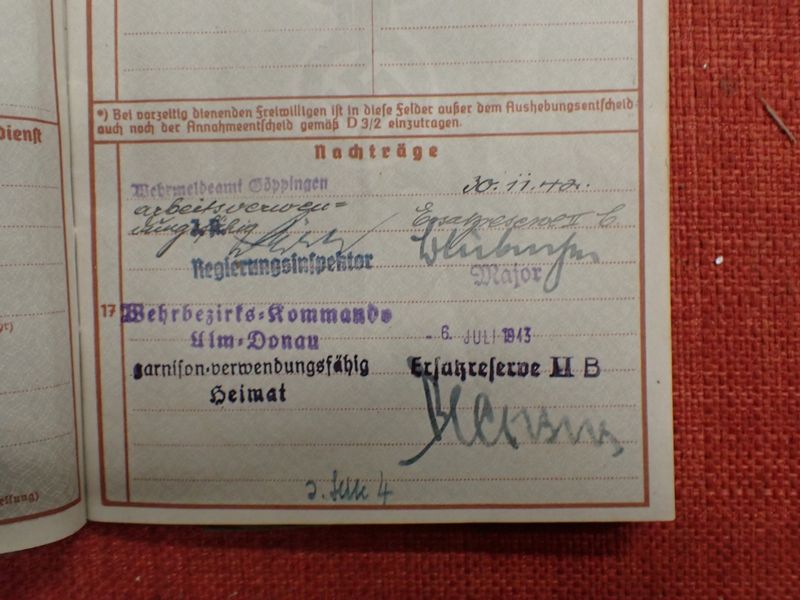 *) Bei vorzeitig dienenden Freiwilligen ist in diese Felder außer dem Aushebungsentscheid
auch noch der Annahmeentscheid gemäß D 3/2 einzutragen.
dienst
Nachträge
Wehrmeldeamt Göppingen
30.11.42.
arbeitsverwen=
dungsfähig
Ersatzreserve II C
Regierungsinspektor
Major
17 Wehrbezirks-Kommando
Ulm-Donau
- 6. JULI 1943
garnison-verwendungsfähig
Heimat
Ersatzreserve II B
s. Seite 4